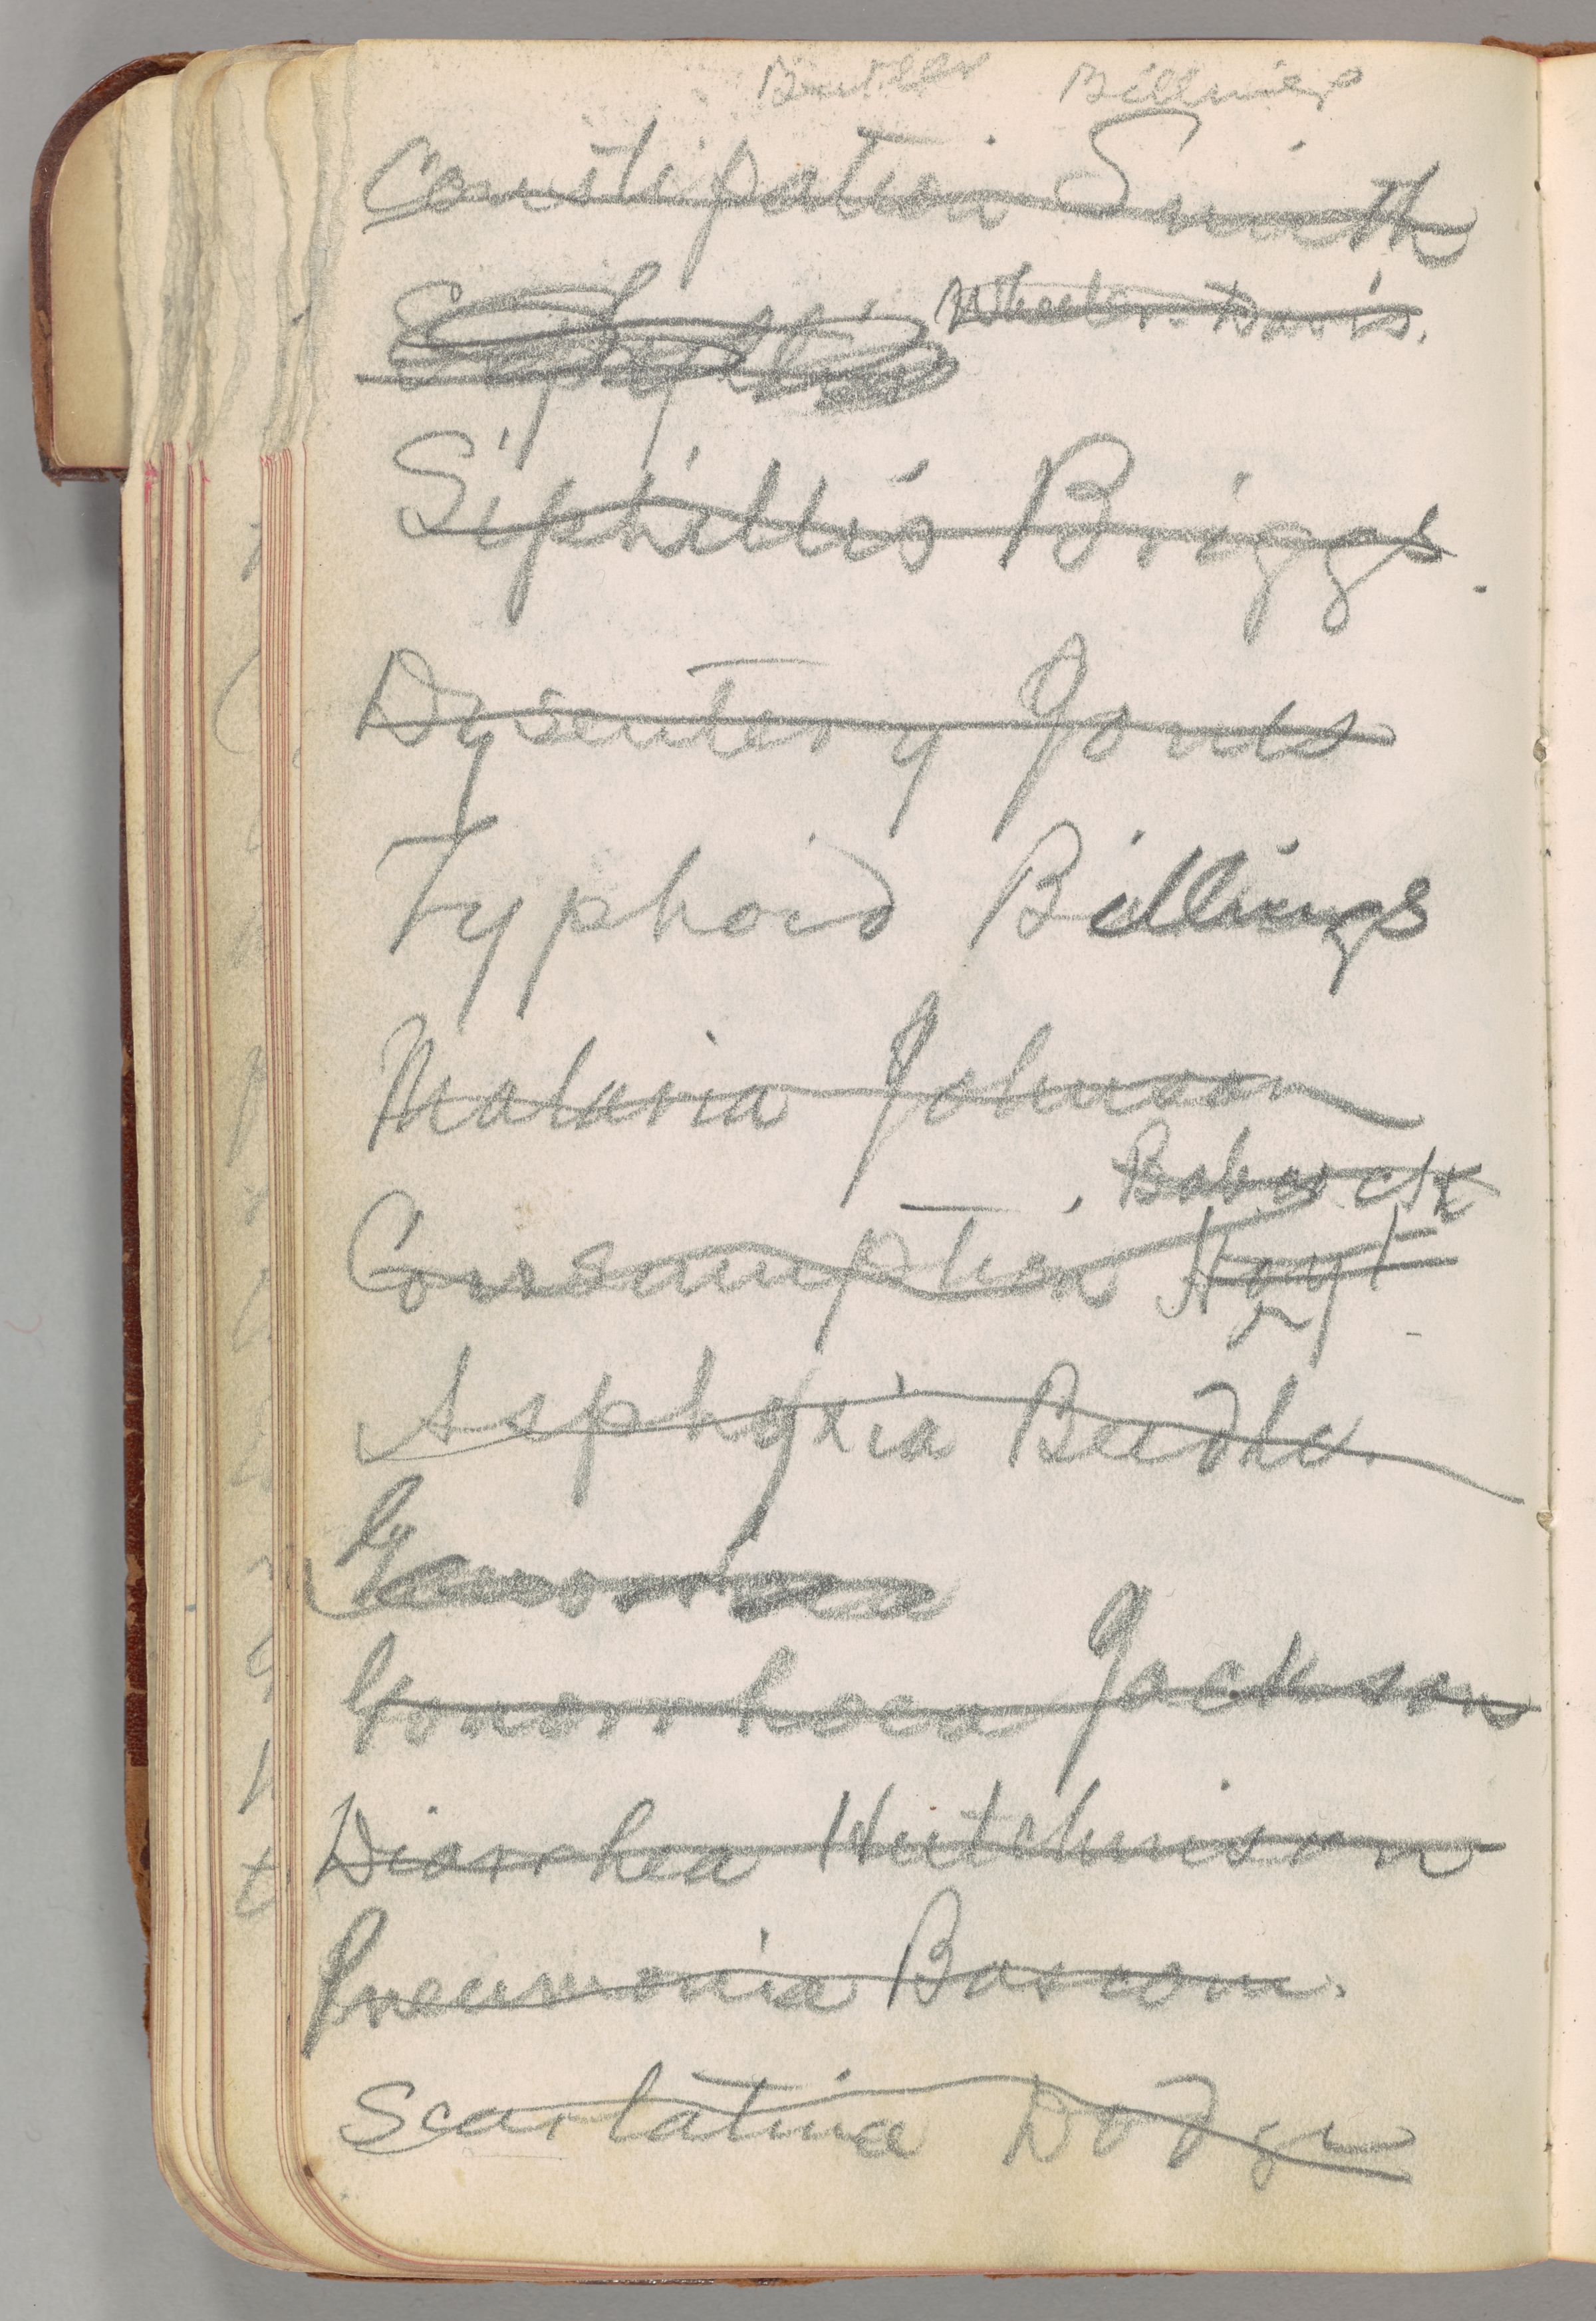 Butler Billings
Constipation Smith
Wheeler. Davis.
Siphillis Briggs.
Dysentery Jones
Typhoid Billings
Malaria Johnson
Babcock
Consumption Hoyt
Asphyxia Beedle.
Gonorrhoea Jackson
Diarrhea Hutchinson
Pneumonia Bascom.
Scarlatina Dodge